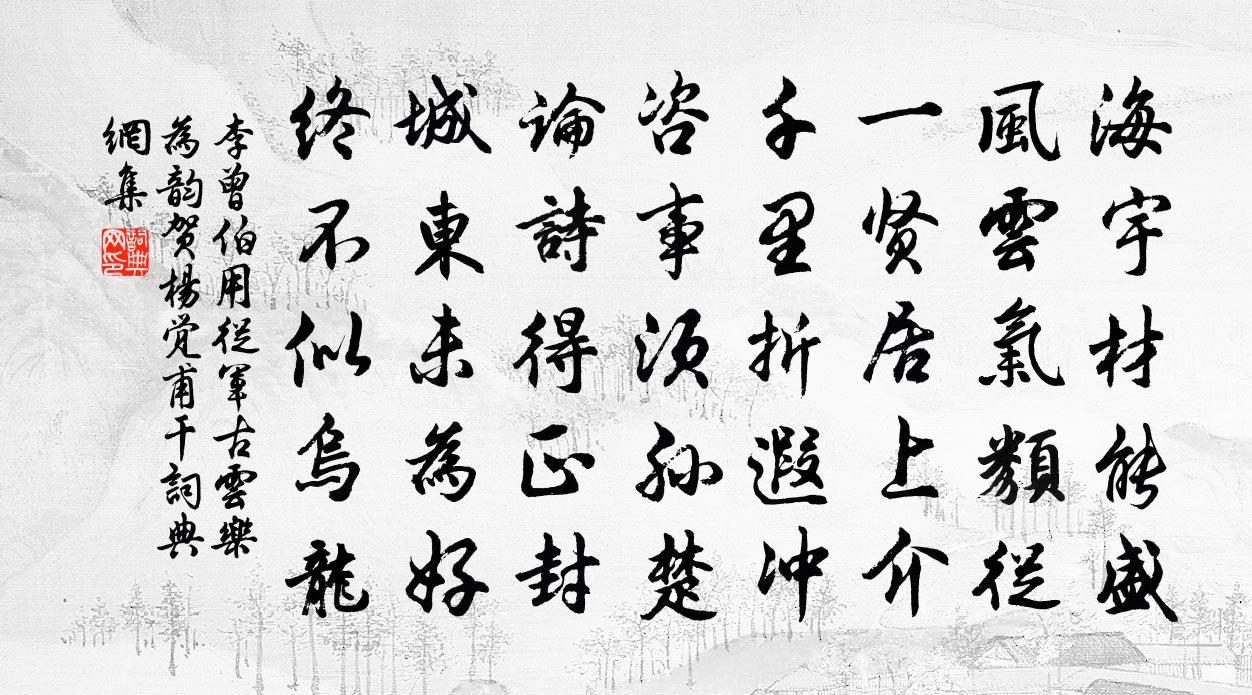 海宇材能盛
風雲氣類從
一贤居上介
千里折遐冲
咨事須孙楚
論詩得正封
城東未為好
終不似烏龍
李曾伯用從軍古雲樂
為韵贺楊觉甫干詞典
網集
詞典網印